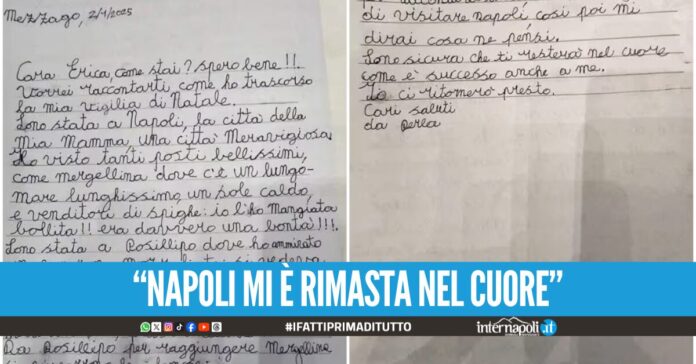 Mezzago, 2/1/2025
Cara Erica, come stai? spero bene!!
Vorrei raccontarti come ho trascorso
la mia vigilia di Natale.
Sono stata a Napoli, la città della
Mia Mamma, una città Meravigiosa
Ho visto tanti posti bellissimi,
come mergellina dove c'è un lungo-
mare lunghissimo, un sole caldo,
e venditori di spighe: io l'ho Mangiata
bollita!! era davvero una bontà!!!.
Sono stata a Posillipo dove ho ammirato
Da Posillipo per raggiungere Mergellina
di visitare napoli così poi mi
dirai cosa ne pensi.
Sono sicura che ti resterà nel cuore
come è successo anche a me.
Io ci ritornerò presto.
Cari saluti
da Perla
“NAPOLI MI È RIMASTA NEL CUORE”
#IFATTIPRIMADITUTTO
internapoli.it